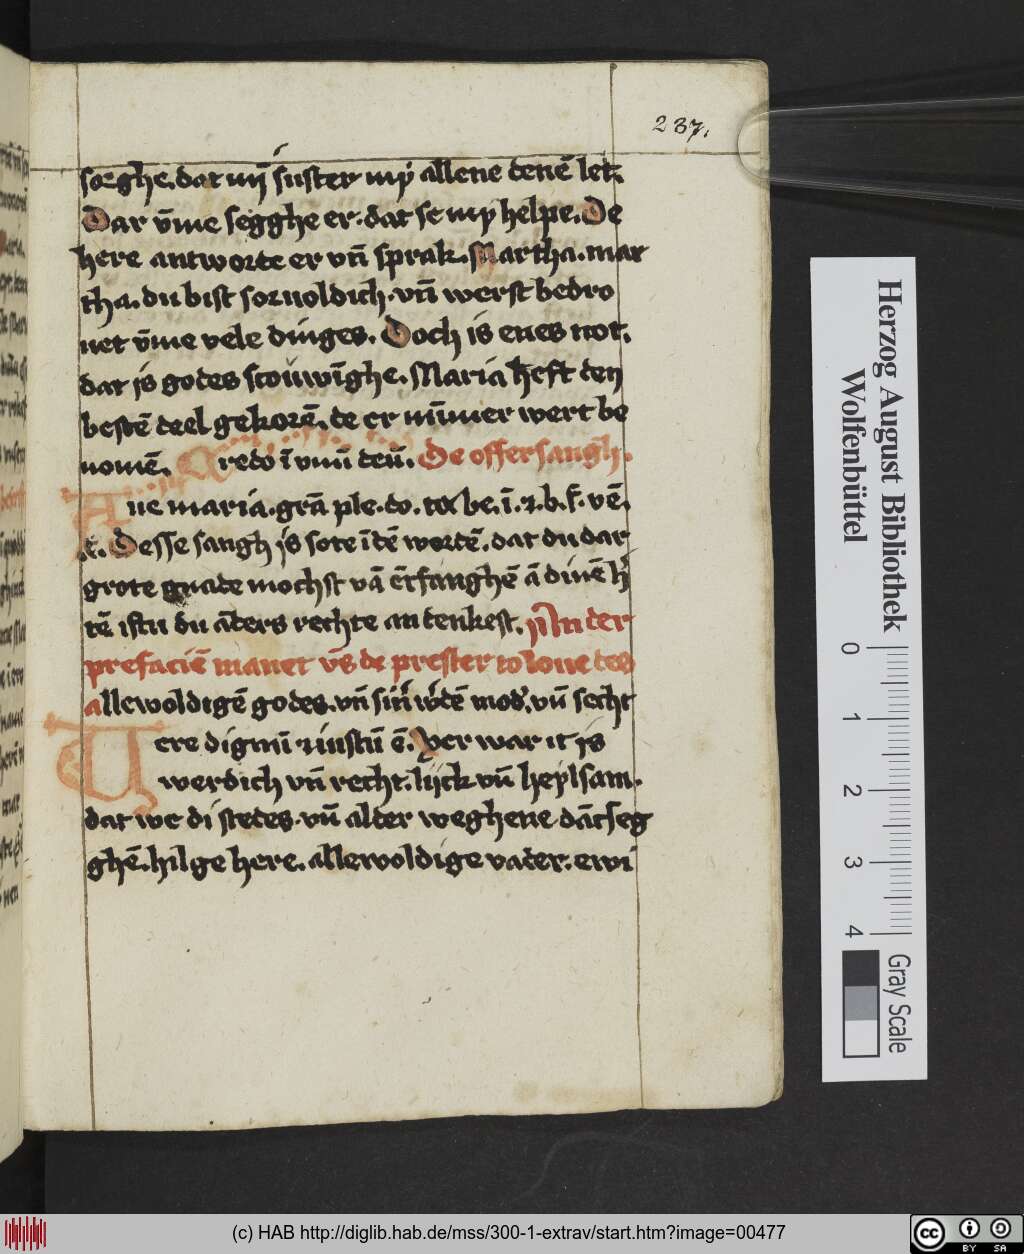 237.
sorghe. dat mȳ suster mẏ allene denē let.
Dar v̄me segghe er. dat se my helpe. De
here antworde er vn̄ sprak. Martha. mar
tha. du bist soruoldich. vn̄ werst bedro
uet v̄me vele dinges. Doch is enes not.
dat is godes scouwīghe. Maria heft den
bestē deel gekorē. de er nūmer wert be
nomē. Credo ī vnū deū. De offersangh.
Aue maria. grā ple. do. te be. ī. ⁊. b. f. vē.
t. Desse sangh is sote ī dē wordē. dat du dar
grote gnade mochst vā ērfanghē ā dinē h
tē istu du āders rechte an denkest. In der
prefaciē manet vs̄ de prester to loue des
allewoldigē godes. vn̄ sin̄ w̄dē mod̉. vn̄ secht
Uere dignū ⁊ iustū ē. Ver war it is
werdich vn̄ recht. lijck vn̄ heylsam.
dat we di stedes. vn̄ alder weghene dāc seg
ghē. hilge here. allewoldige vader. ewi
Herzog August Bibliothek
Wolfenbüttel
0 1 2 3 4
Gray Scale
(c) HAB http://diglib.hab.de/mss/300-1-extrav/start.htm?image=00477
cc BY SA